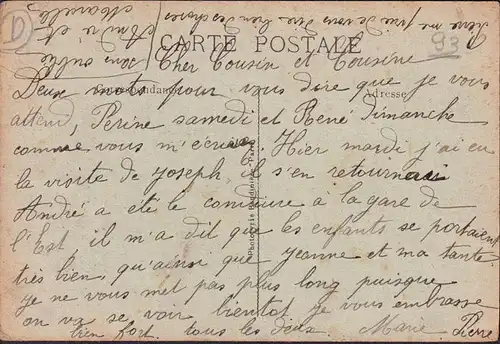 D
93
CARTE POSTALE
Correspondance
Adresse
Cher Cousin et Cousine
Deux mots pour vous dire que je vous
attend, Perine samedi et René Dimanche
comme vous m'ecrivez. Hier mardi j'ai eu
la visite de Joseph, il s'en retournai
André a eté le conduire à la gare de
l'Est il m'a dit que les enfants se portaient
très bien, qu'ainsi que Jeanne et ma tante
je ne vous met pas plus long puisque
on va se voir bientot je vous embrasse
bien fort. tous les deux. Marie Pierre
Pierre me prie de vous dire bien des choses
sans oublié
André et
Marcelle